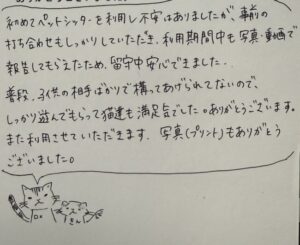 初めてペットシッターを利用し不安はありましたが、事前の
打ち合わせもしっかりしていただき、利用期間中も写真・動画で
報告してもらえたため、留守中安心できました。
普段、子供の相手ばかりで構ってあげられてないので、
しっかり遊んでもらって猫達も満足気でした。ありがとうございます。
また利用させていただきます。写真(プリント)もありがとう
ございました。